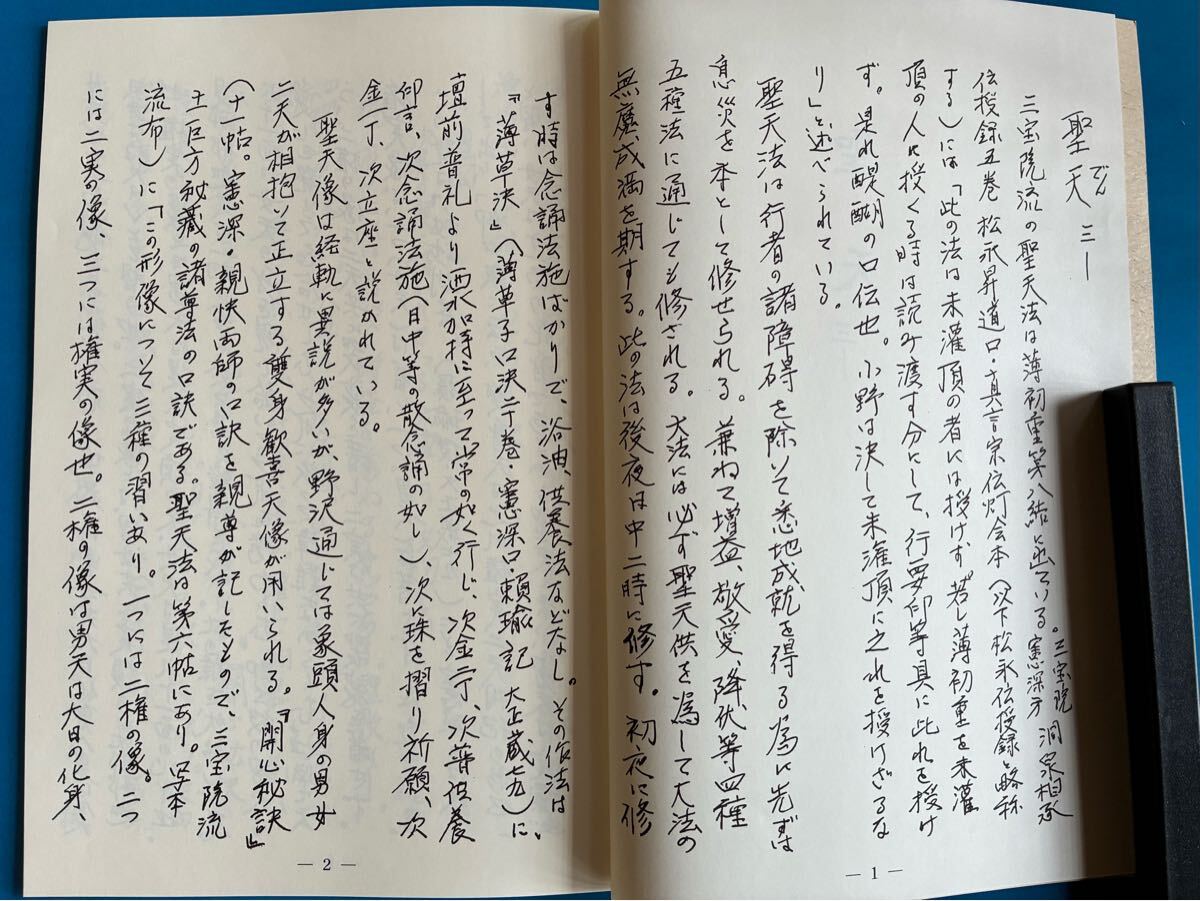 聖天 でん 三—
三宝院流の聖天法は薄初重第八結に出ている。三宝院 憲深方 洞泉相承
伝授録五巻 松永昇道口・真言宗伝灯会本(以下松永伝授録と略称
する)には「此の法は未灌頂の者には授けず。若し薄初重を未灌
頂の人に授くる時は読み渡す分にして、行要印等具に此れを授け
ず。是れ醍醐の口伝也。小野は決して未灌頂に之れを授けざるな
り」と述べられている。
聖天法は行者の諸障碍を除いて悉地成就を得る為に先ずは
息災を本として修せられる。兼ねて増益、敬愛、降伏等四種
五種法に通じても修される。大法には必ず聖天供を為して大法の
無魔成満を期する。此の法は後夜日中二時に修す。初夜に修
— 1 —
す時は念誦法施ばかりで、浴油、供養法などなし。その作法は
『薄草決』(薄草子口決二十巻・憲深口・頼瑜記 大正蔵七九)に、
壇前普礼より洒水加持に至って常の如く行じ、次金二丁、次普供養
印言、次念誦法施(日中等の散念誦の如し)、次に珠を摺り祈願、次
金一丁、次立座と説かれている。
聖天像は経軌に異説が多いが、野沢通じては象頭人身の男女
二天が相抱いて正立する雙身歓喜天像が用いられる。『開心秘訣』
(十一帖。憲深・親快両師の口訣を親尊が記したもので、三宝院流
十一巨方秘蔵の諸尊法の口訣である。聖天法は第六帖にあり。写本
流布)に「この形像について三種の習いあり。一つには二権の像。二つ
には二実の像、三つには権実の像也。二権の像は男天は大日の化身、
— 2 —